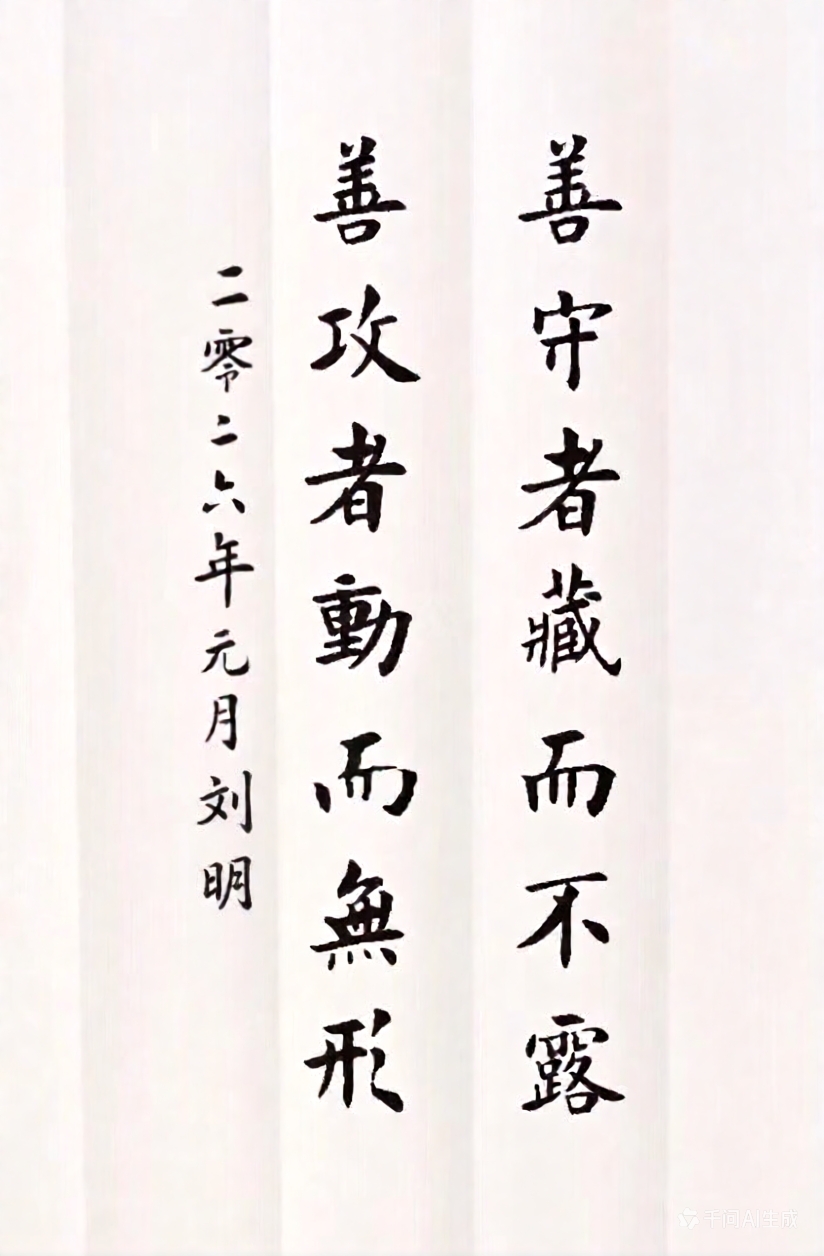 善守者藏而不露
善攻者動而無形
二零二六年元月刘明
千问AI生成